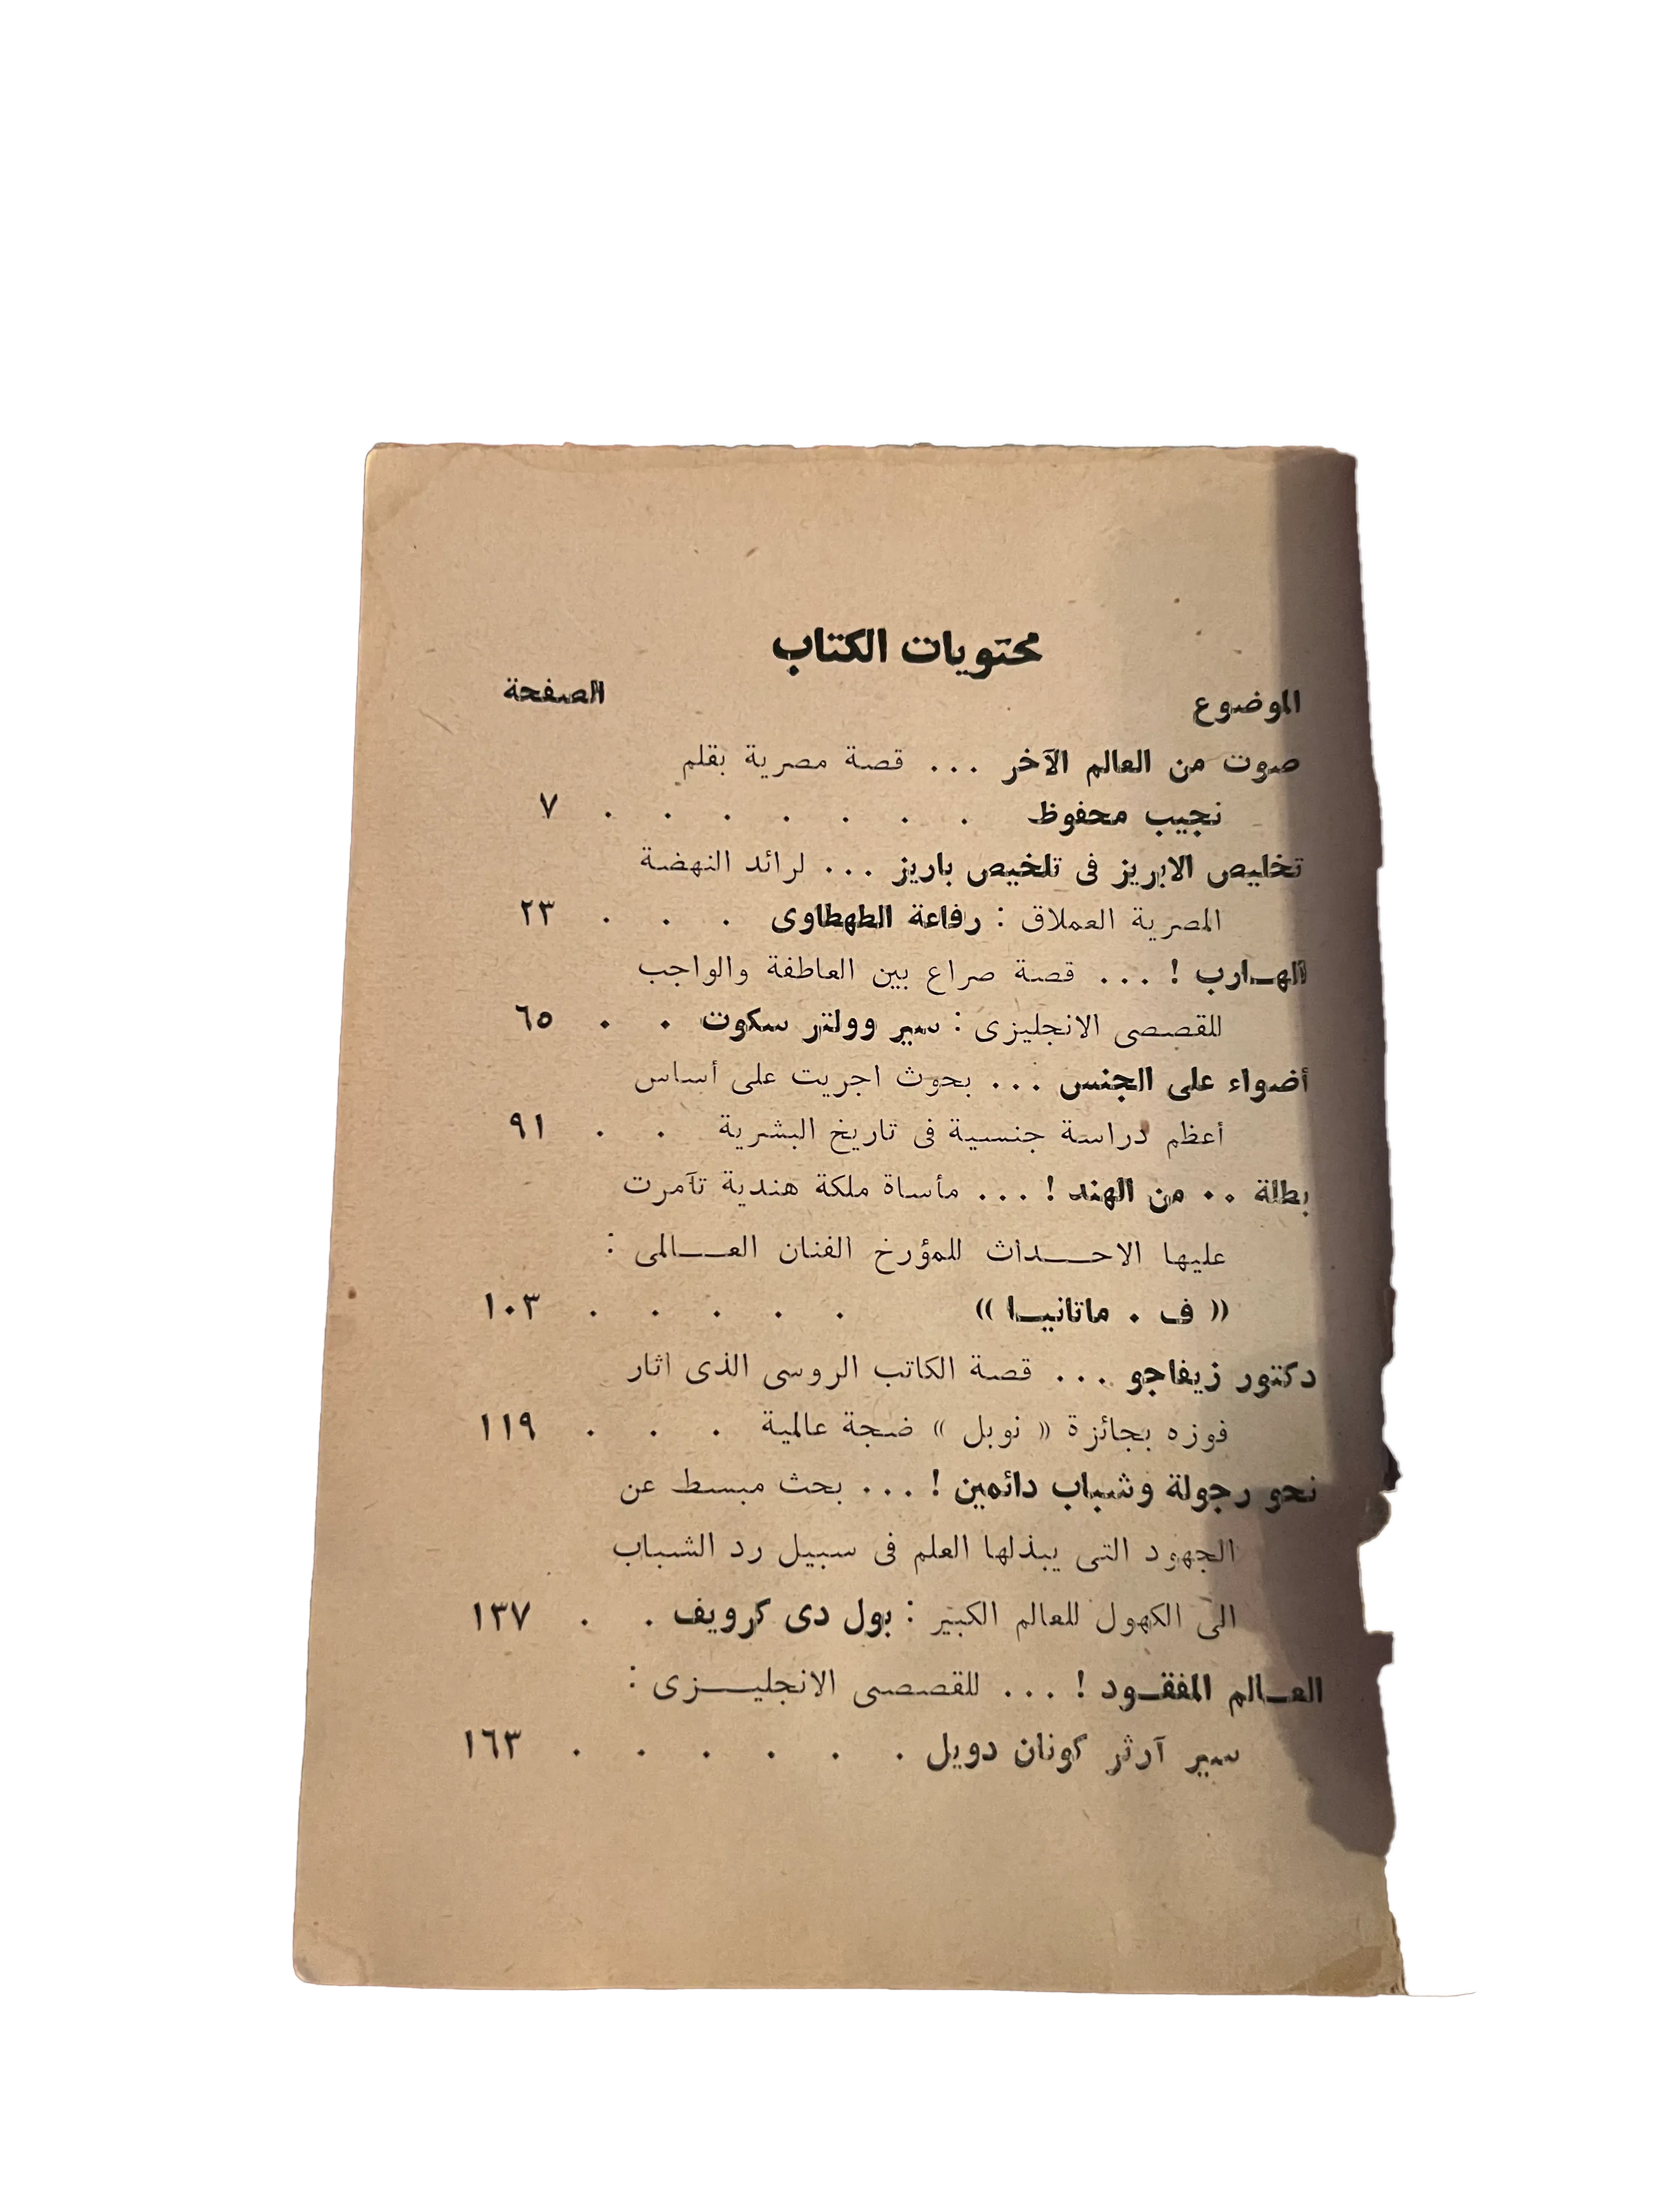 محتويات الكتاب
الموضوع الصفحة
صوت من العالم الآخر ... قصة مصرية بقلم
نجيب محفوظ . . . . . . . ٧
تخليص الابريز فى تلخيص باريز ... لرائد النهضة
المصرية العملاق : رفاعة الطهطاوى . . . ٢٣
الهـارب ! ... قصة صراع بين العاطفة والواجب
للقصصى الانجليزى : سير وولتر سكوت . . ٦٥
أضواء على الجنس ... بحوث اجريت على أساس
أعظم دراسة جنسية فى تاريخ البشرية . . ٩١
بطلة .. من الهند ! ... مأساة ملكة هندية تآمرت
عليها الاحـــداث للمؤرخ الفنان العــالمى :
« ف . ماتانيـا » . . . . . ١٠٣
دكتور زيفاجو ... قصة الكاتب الروسى الذى اثار
فوزه بجائزة « نوبل » ضجة عالمية . . . ١١٩
نحو رجولة وشباب دائمين ! ... بحث مبسط عن
الجهود التى يبذلها العلم فى سبيل رد الشباب
الى الكهول للعالم الكبير : بول دى كرويف . . ١٣٧
العـالم المفقـود ! ... للقصصى الانجليــزى :
سير آرثر كونان دويل . . . . . . ١٦٣